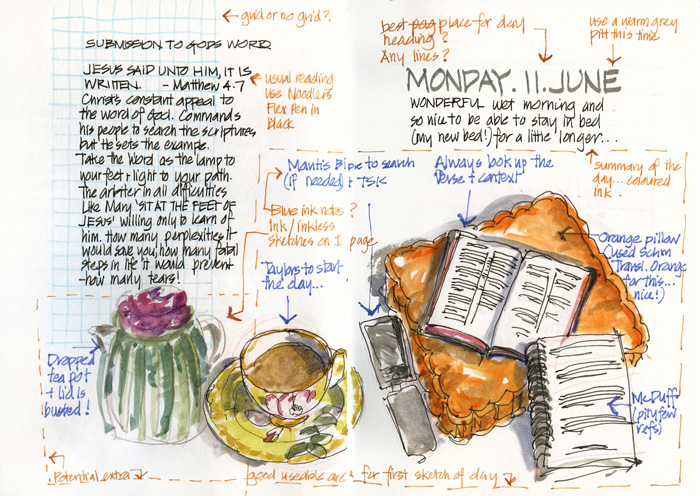 grid or no grid?.
SUBMISSION TO GODS WORD
JESUS SAID UNTO HIM, IT IS
WRITTEN. - Matthew 4.7
Christ's constant appeal to
the word of God. Commands
his people to search the scriptures
but He sets the example.
Take the Word as the lamp to
your feet + light to your path.
The arbiter in all difficulties
Like Mary 'SIT AT THE FEET OF
JESUS' willing only to learn of
him. How many perplexities it
would save you, how many fatal
steps in life it would prevent
-how many tears!
usual reading
use Noodlers
Flex Pen in
Black
best place for day
heading?
Any lines?
use a warm grey
pitt this time
MONDAY. 11. JUNE
WONDERFUL wet morning and
so nice to be able to stay in bed
(my new bed!) for a little longer...
summary of the
day... coloured
ink.
Mantis Bible to search
(if needed) + TSK
Always look up the
Verse + context
Blue ink notes?
Ink/inkless
sketches on 1 page
Taylors to start
the day...
Orange pillow
(used Schm
Transl. Orange
for this...
nice!)
Dropped
tea pot
+ lid is
busted!
McDuff
(pity few
refs)
Potential extra
good useable area for first sketch of day